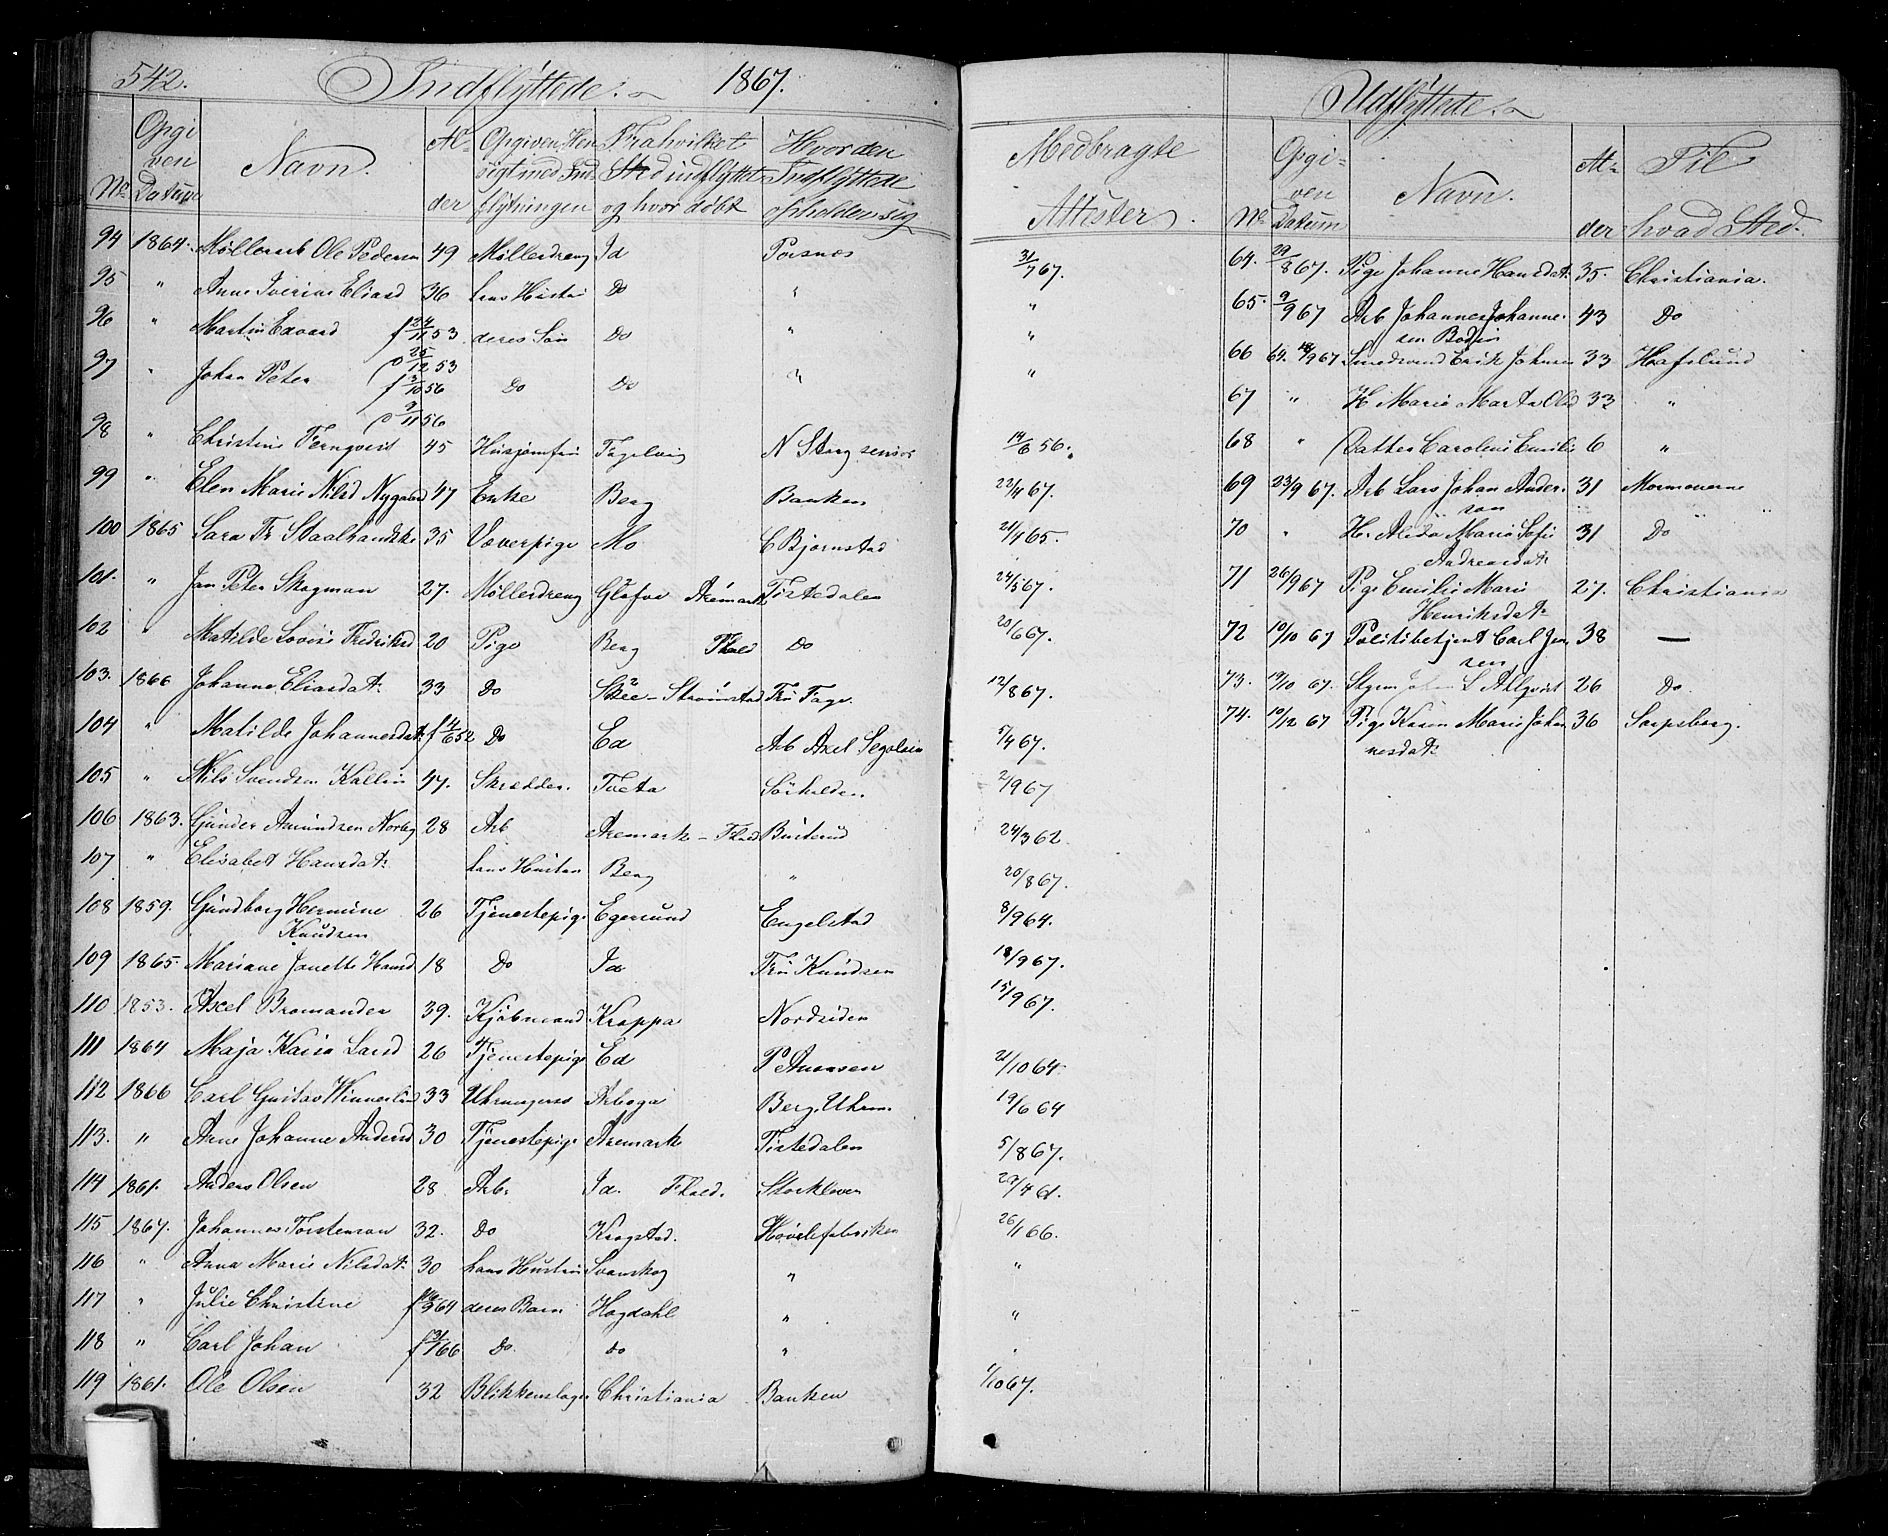 542. Indflyttede. 1867.
No Opgiven Datum Navn. Alder Opgiven Hensigt med Indflytningen Fra hvilket Sted indflyttet og hvor døbt Hvor den Indflyttede opholder sig Medbragte Attester.
94 1864. Møllerarb Ole Pedersen 49 Møllerdreng Id Porsnes 31/7 67.
95 " Anne Iverine Eliasd 36 hans Hustru Do " "
96 " Martin Edvard f 24/11 53 deres Søn Do " "
d 25/12 53
97 " Johan Peter f 3/10 56 Do Do " "
d 9/11 56
98 " Christine Ternqvist 45 Husjomfru Fogelvig N Stang senior 14/6 56.
99 " Elen Marie Nilsd Nygaard 47 Enke Berg Banken 23/4 67.
100 1865 Sara Fr Staalhandske 35 Væverpige Mo C Bjørnstad 21/4 65.
101. " Jan Peter Skogman 27. Møllerdreng Glafva Aremark Tistedalen 24/5 67.
102 " Matilde Lovise Fredriksd 20 Pige Berg Fhald Do 20/6 67.
103. 1866 Johanne Eliasdat: 33 Do Skee - Strømstad Fru Fage. 12/8 67.
104 " Matilde Johannesdat: f 4/6 52 Do Ed Arb Axel 5/4 67.
105 " Nils Svendsen Kallin 47. Skrædder. Tveta Sørhalden 2/9 67
106 1863. Gunder Amundsen Norby 28 Arb Aremark - Fhald Busterud 24/3 62.
107 " Elisabet Hansdat: hans Hustru Berg " 20/8 67.
108 1859. Gundborg Hermine 26 Tjenestepige Egersund Engelstad 8/9 64.
Knudsen
109 1865. Mariane Janette Hansd 18 Do Id Fru Knudsen 18/9 67.
110 1853. Axel Bromander 39. Kjøbmand Kroppa Nordsiden 15/9 67.
111 1864 Maja Kaisa Larsd 26 Tjenestepige Ed P Amonsen 21/10 64
112 1866 Carl Gustav Winnerlund 33 Uhrmagersv Arboga Berg. Uhrm. 19/6 64
113. " Anne Johanne Andersd 30 Tjenestepige Aremark Tistedalen 5/8 67.
114 1861. Anders Olsen 28 Arb. Id. Fhald. Storkleven 29/4 61.
115 1867. Johannes Torstenson 32. Do Krogstad. Høvlefabriken 26/1 66.
116 " Anna Marie Nilsdat: 30 hans Hustru Svanskog " "
117 " Julie Christine 64 deres Barn Hogdahl " "
118 " Carl Johan 66 Do. do " "
119 1861. Ole Olsen 32 Blikkenslager Christiania Banken 1/10 67.
Udflyttede.
No Opgiven Datum Navn. Alder Til hvad Sted.
64. 29/8 67. Pige Johanne Hansdat: 35. Christiania.
65. 9/9 67 Arb Johannes Johanne- 43 Do
sen Bodin
66 64. 18/9 67. Smedsvend Erik Johnsen 33 Hafslund
67 " H Marie Marta Olsd 32 "
68 " Datter Caroline Emilie 6 "
69 23/9 67. Arb Lars Johan Ander- 31 Mormonerne
son
70 " H. Alida Maria Sofie 31 Do
Andreasdat:
71 26/9 67 Pige Emilie Marie 27. Christiania
Henriksdat:
72 10/10 67 Politibetjent Carl Jen 38 —
sen
73. 19/10 67. Styrm Johan L Ahlqvist 26 Do.
74. 10/12 67 Pige Karen Marie Johan 36 Sarpsborg.
nesdat: